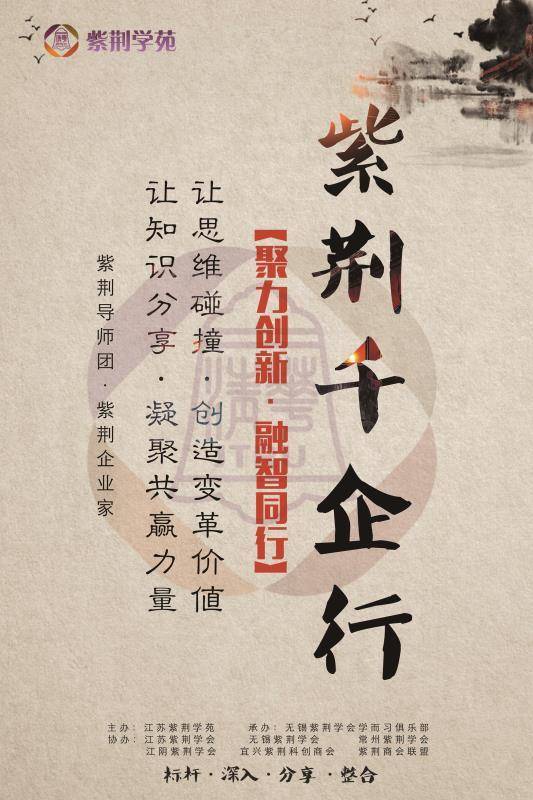 紫荆学苑
紫荆千企行
【聚力创新·融智同行】
让思维碰撞·创造变革价值
让知识分享·凝聚共赢力量
紫荆导师团·紫荆企业家
主办：江苏紫荆学苑 承办：无锡紫荆学会学而习俱乐部
协办：江苏紫荆学会 无锡紫荆学会 常州紫荆学会
江阴紫荆学会 宜兴紫荆科创商会 紫荆商会联盟
标杆·深入·分享·整合